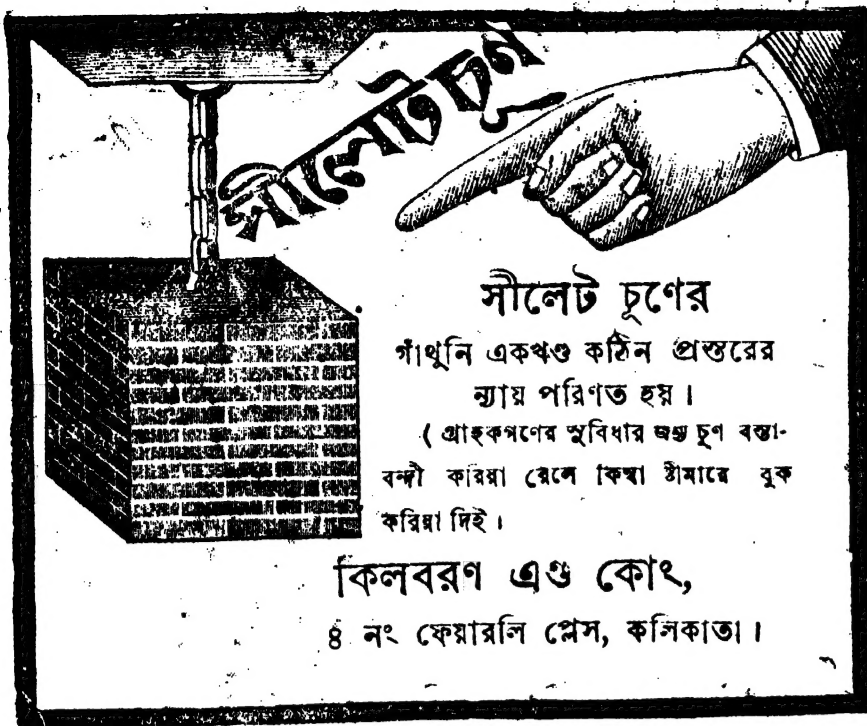 সীলেট চূণ
সীলেট চূণের
গাঁথুনি একখণ্ড কঠিন প্রস্তরের
ন্যায় পরিণত হয়।
( গ্রাহকগণের সুবিধার জন্য চূণ বস্তা-
বন্দী করিয়া রেলে কিম্বা ষ্টীমারে বুক
করিয়া দিই।
কিলবরণ এণ্ড কোং,
৪ নং ফেয়ারলি প্লেস, কলিকাতা।